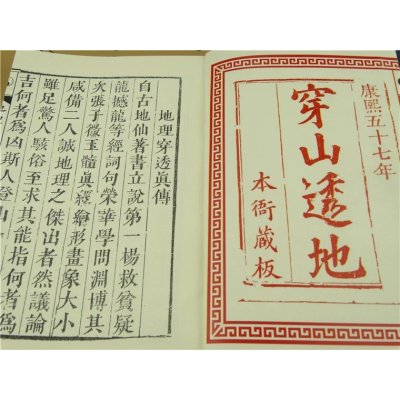 康熙五十七年
穿山透地
本衙藏板
地理穿透真傳
自古地仙著書立說第一楊救貧疑
龍撼龍等經詞句榮華學問淵博其
次張子微玉髓真經舉形畫象大小
咸備二人誠地理之傑出者然議論
雖足驚人駭俗至求其能指何者為
吉何者為凶斯人登山